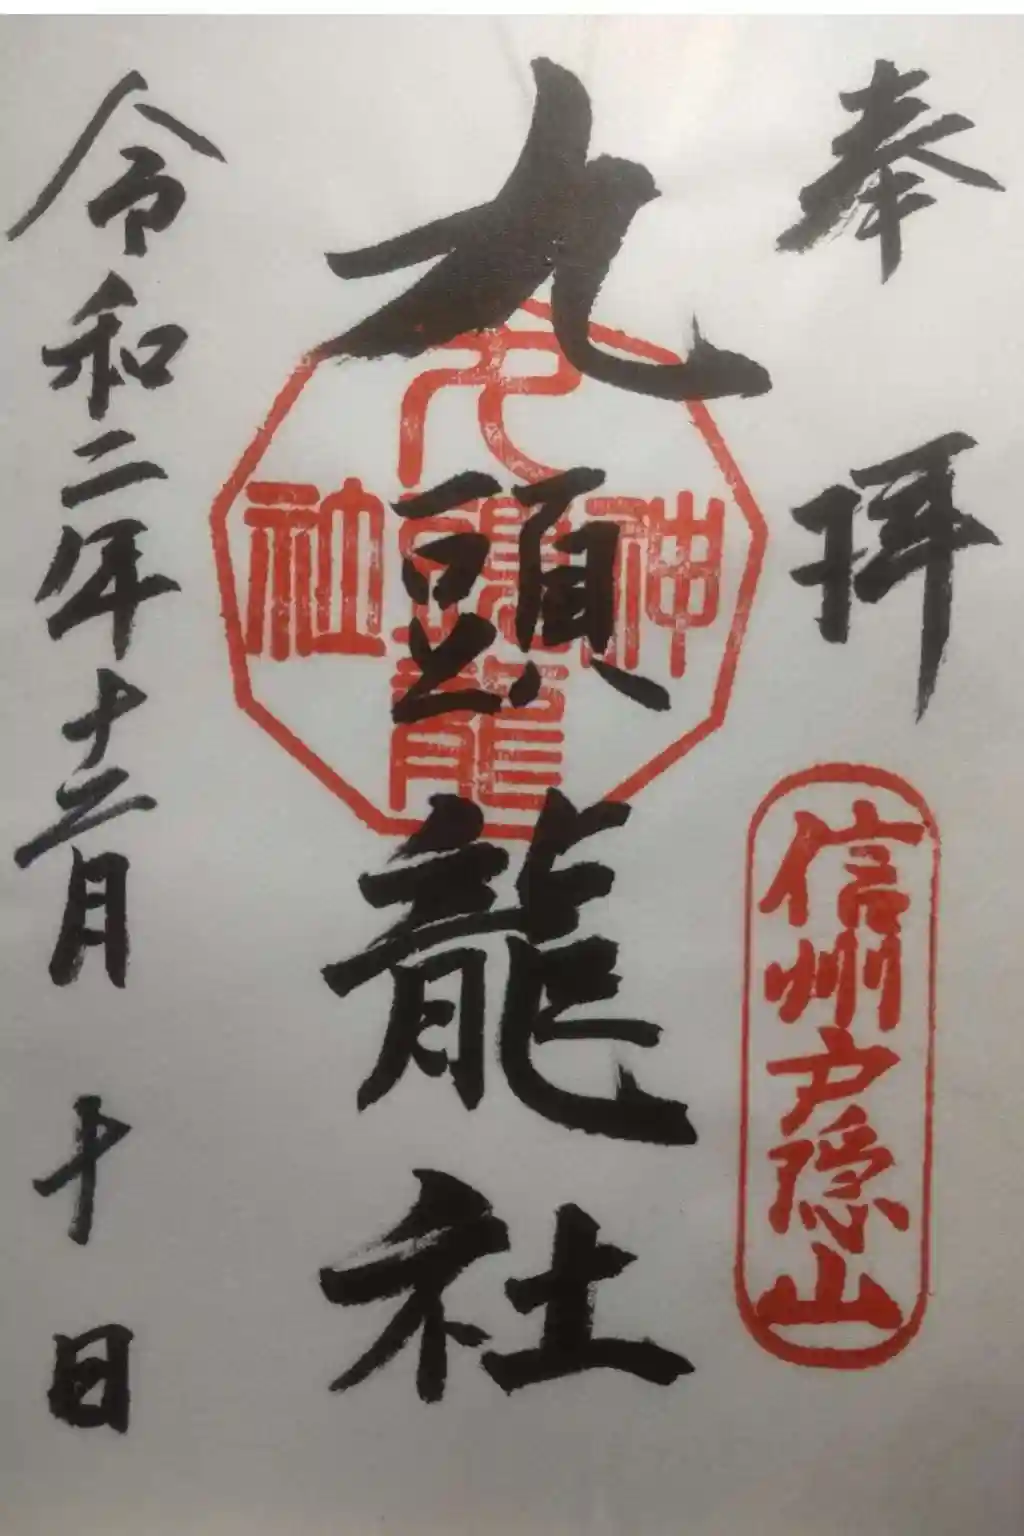 奉拝
信州戸隠山
九頭龍社
神九頭龍社
令和二年十二月十日